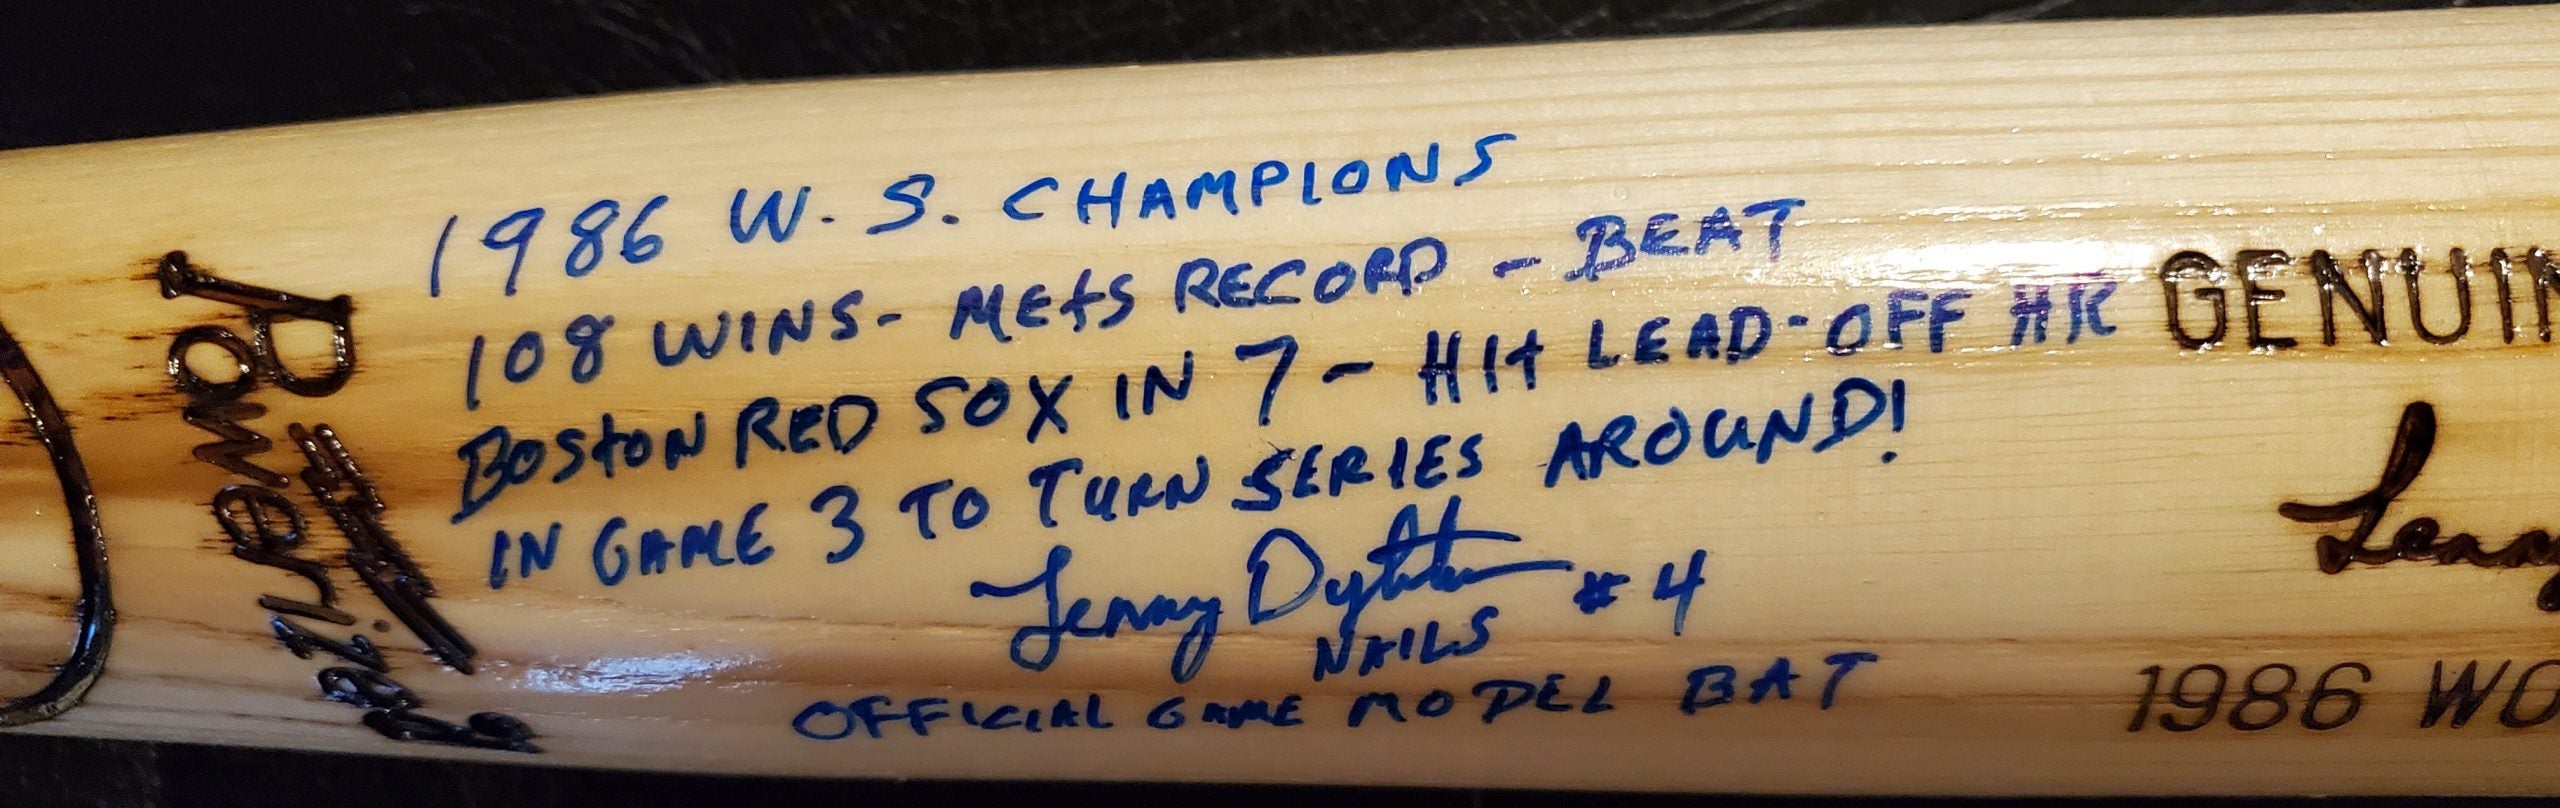 Powerized
1986 W. S. CHAMPIONS
108 WINS - METS RECORD - BEAT
BOSTON RED SOX IN 7 - HIT LEAD-OFF HR
IN GAME 3 TO TURN SERIES AROUND!
Lenny Dykstra #4
NAILS
OFFICIAL GAME MODEL BAT
GENUIN
Lenny
1986 WO